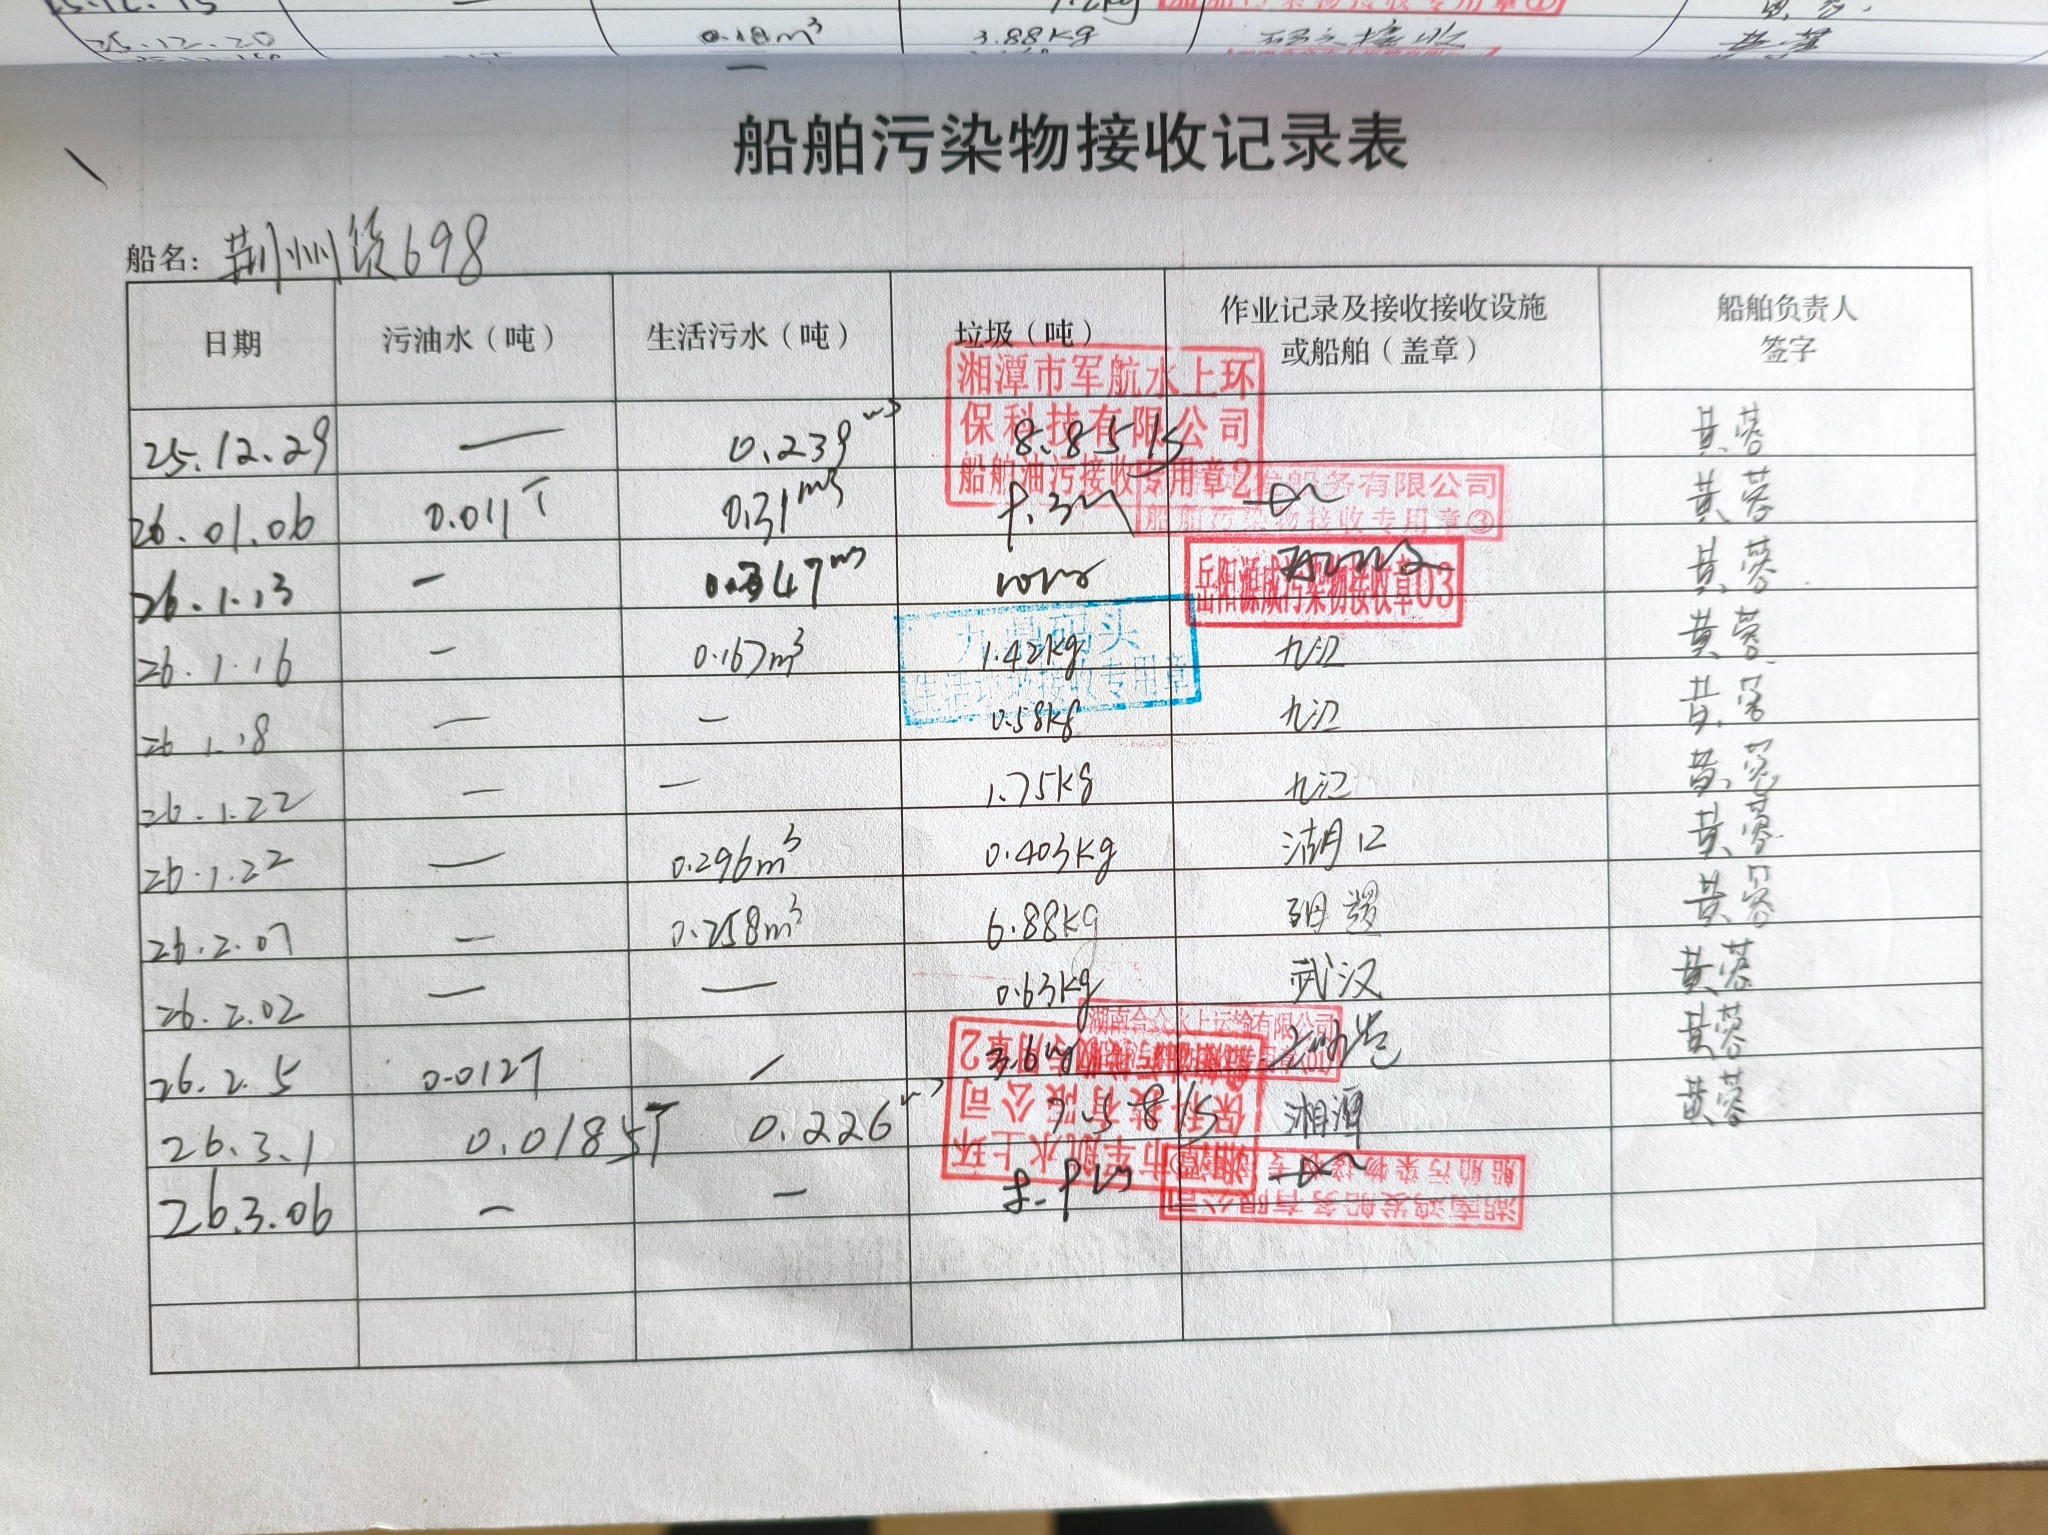 25.12.20 0.18m³ 3.88kg
船舶污染物接收记录表
船名: 荆州货698
日期 污油水（吨） 生活污水（吨） 垃圾（吨） 作业记录及接收接收设施 船舶负责人
或船舶（盖章） 签字
湘潭市军航水上环
保科技有限公司
船舶油污接收专用章2
25.12.29 — 0.239 m³ 8.85 黄蓉
船务有限公司
船舶污染物接收专用章③
26.01.06 0.011T 0.31m³ 黄蓉
岳阳源威污染物接收章03
26.1.13 — 47m³ 黄蓉
九鼎码头
生活垃圾接收专用章
26.1.16 — 0.167m³ 1.42kg 九江 黄蓉
26.1.18 — — 0.58kg 九江 黄蓉
26.1.22 — — 1.75kg 九江 黄蓉
26.1.22 — 0.296m³ 0.403kg 湖口 黄蓉
26.2.01 — 0.258m³ 6.88kg 黄蓉
26.2.02 — — 0.63kg 武汉 黄蓉
湖南合众水上运输有限公司
26.2.5 0.012T / 3.6kg 黄蓉
26.3.1 0.0185T 0.226 m³ 7.58 湘潭 黄蓉
湘潭市军航水上环
保科技有限公司
26.3.06 — —
湖南鸿发船务有限公司
船舶污染物接收专用章